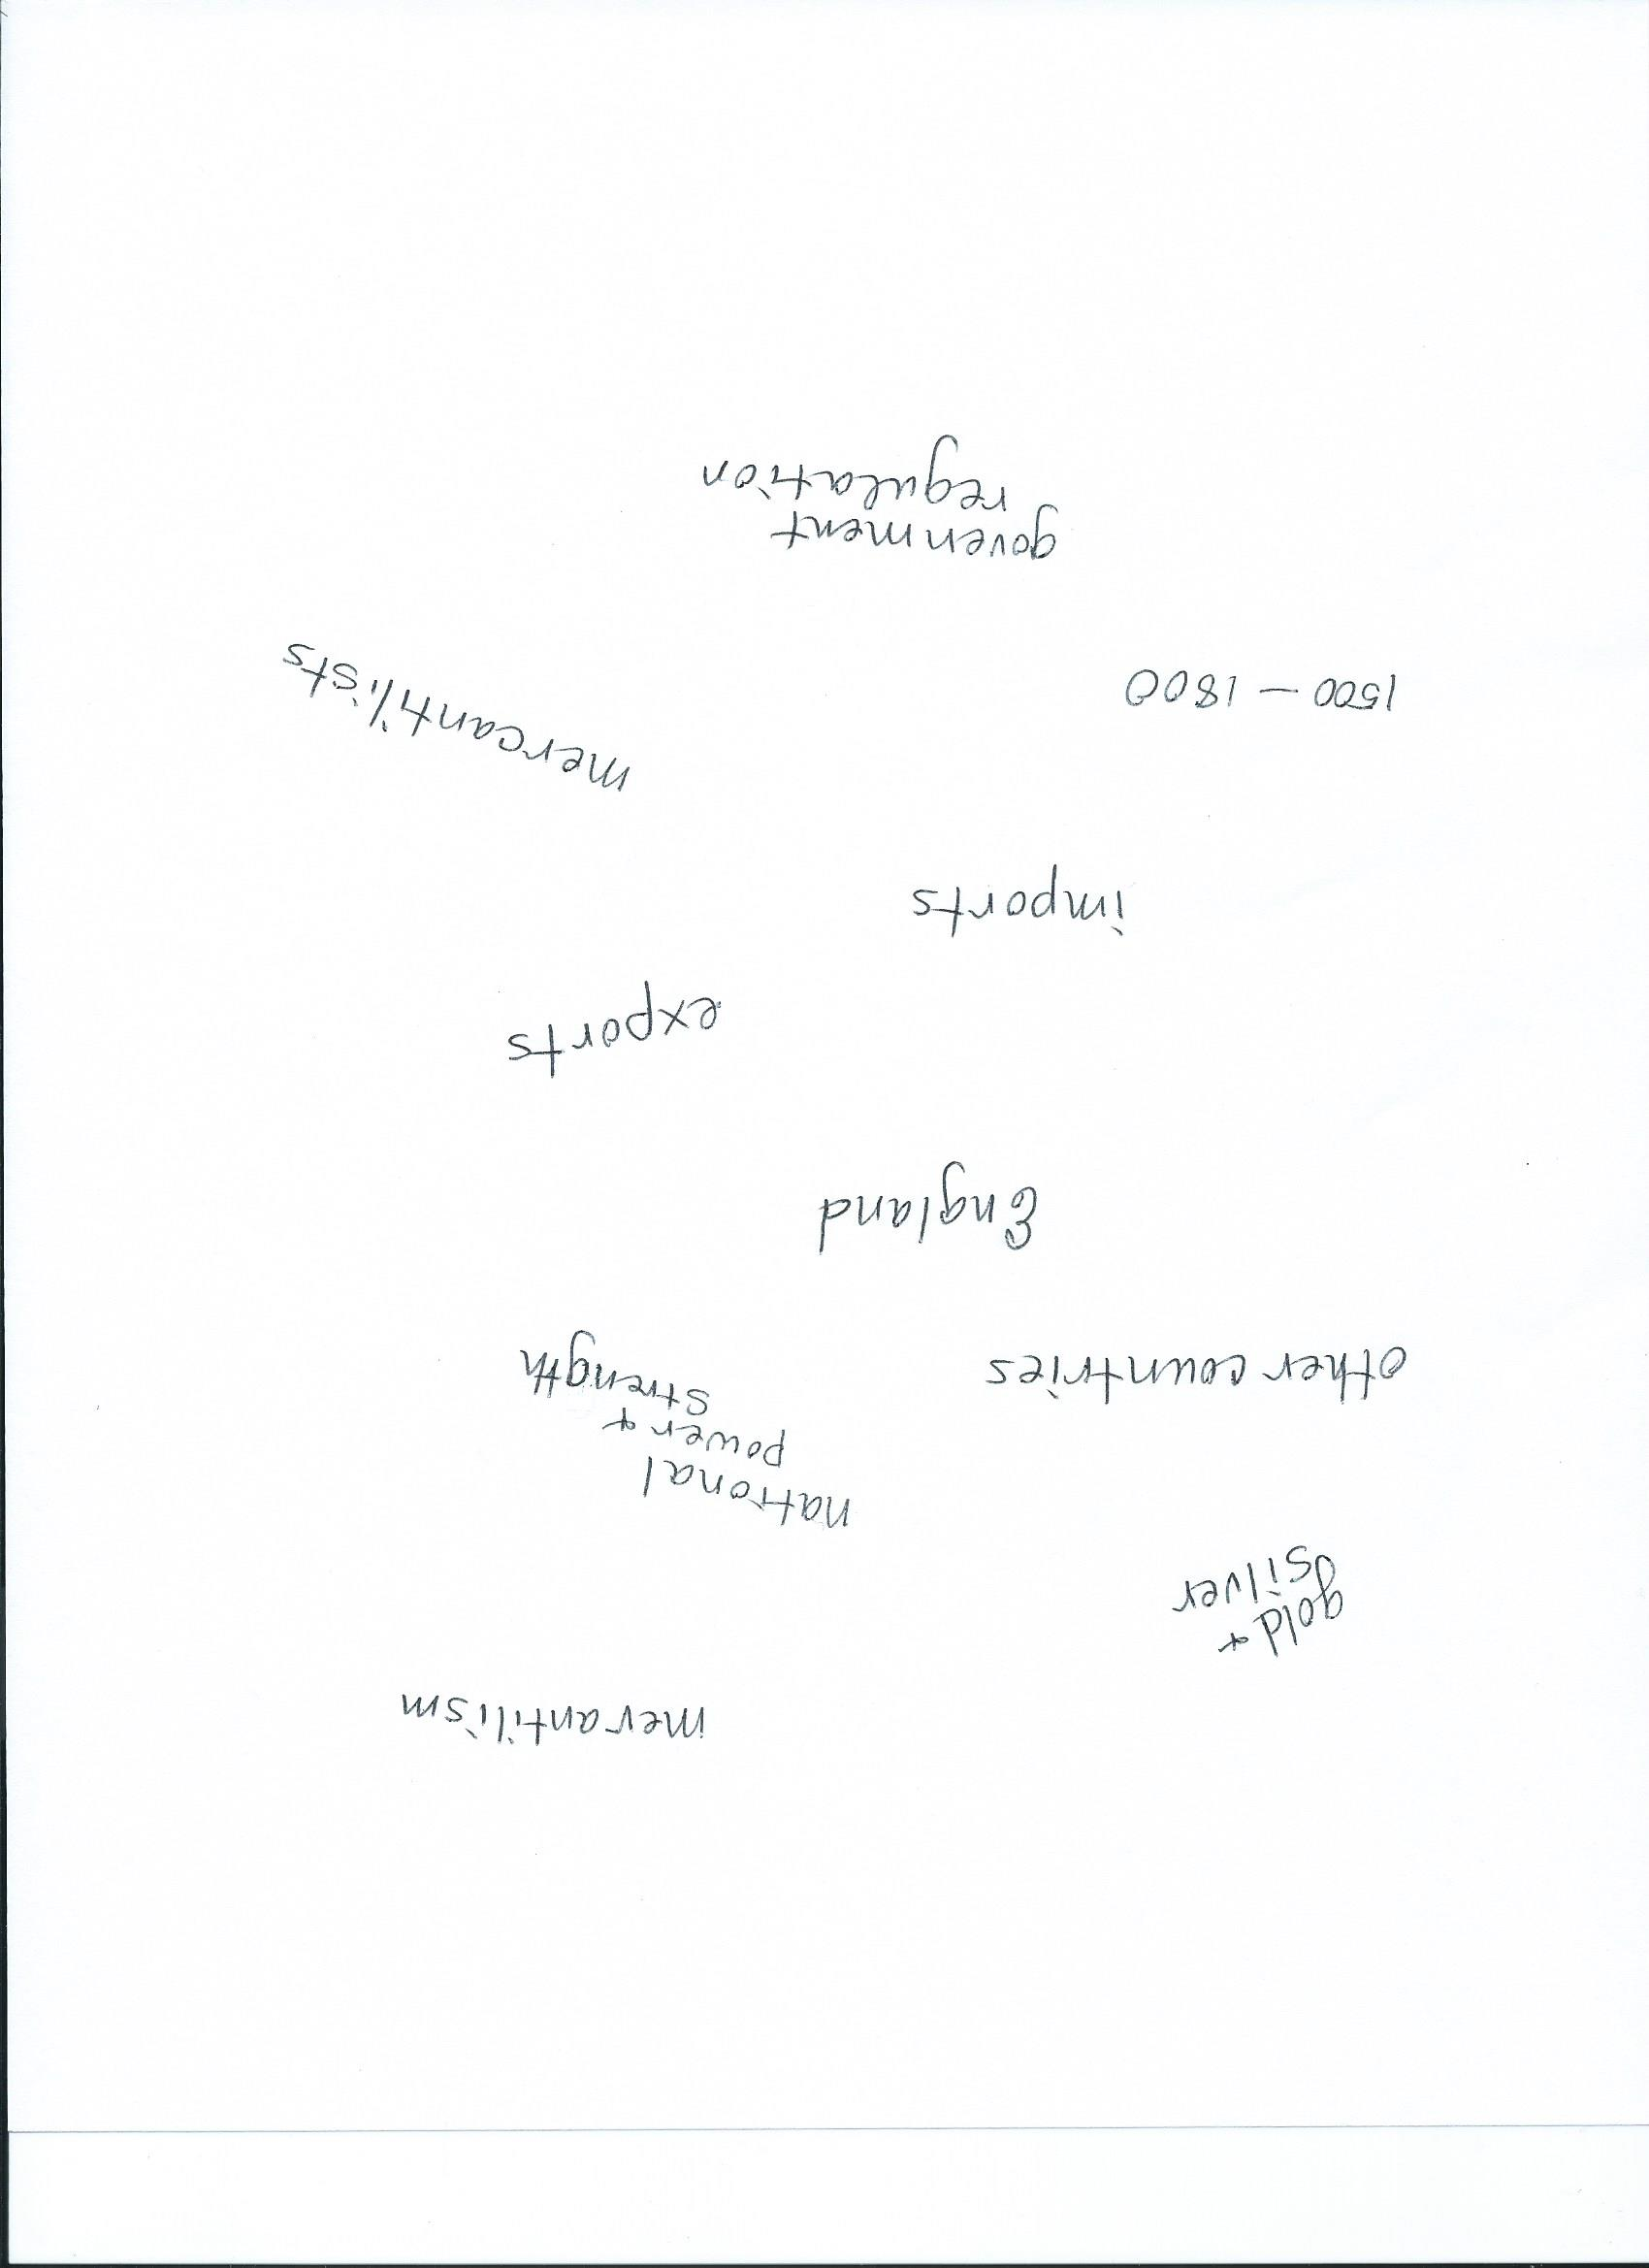 merantilism
gold +
silver
national
power +
strength
other countries
England
exports
imports
1500 - 1800
mercantilists
govenment
regulation